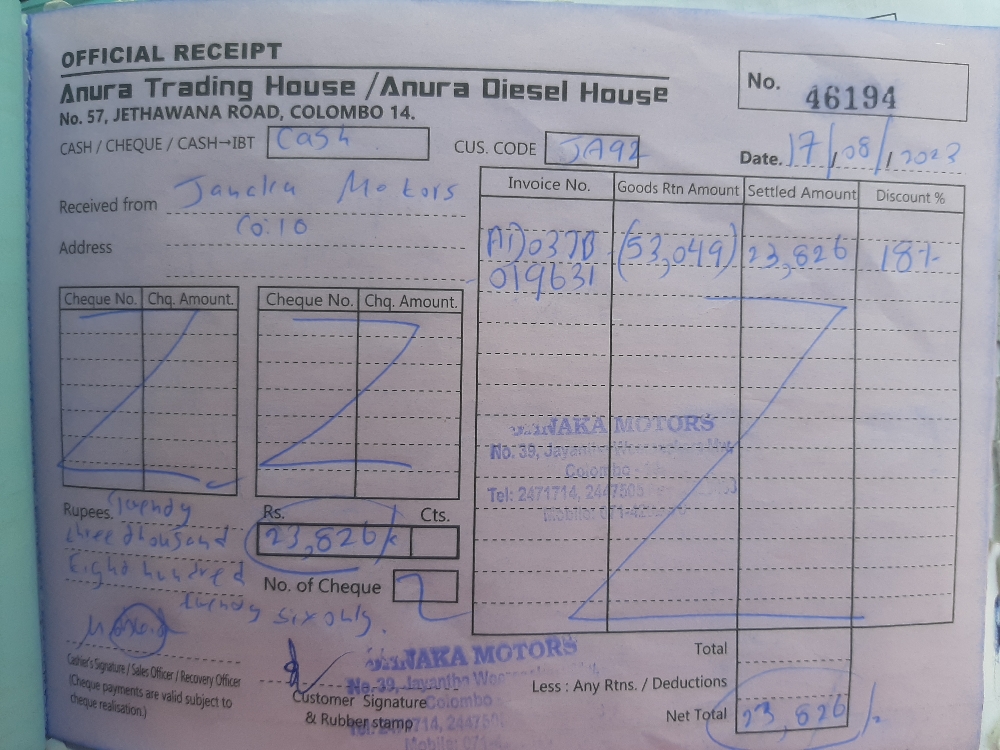 OFFICIAL RECEIPT
Anura Trading House / Anura Diesel House
No. 57, JETHAWANA ROAD, COLOMBO 14.
No. 46194
CASH / CHEQUE / CASH→IBT Cash
CUS. CODE JA92
Date. 17/08/2023
Received from Motors
Address Co:10
Invoice No. Goods Rtn Amount Settled Amount Discount %
(53,049) 23,826 18%
019631
Cheque No. Chq. Amount. Cheque No. Chq. Amount.
JAKA MOTORS
No: 39,
Colombo
Tel: 2471714,
Rupees. Twendy
three thousand
Eight hundred
twendy six only.
Rs. Cts.
23,826/
No. of Cheque
Cashier's Signature / Sales Officer / Recovery Officer
(Cheque payments are valid subject to
cheque realisation.)
Customer Signature
& Rubber stamp
JAKA MOTORS
No. 39, Jayantha
Colombo
Total
Less : Any Rtns. / Deductions
Net Total 23,826/